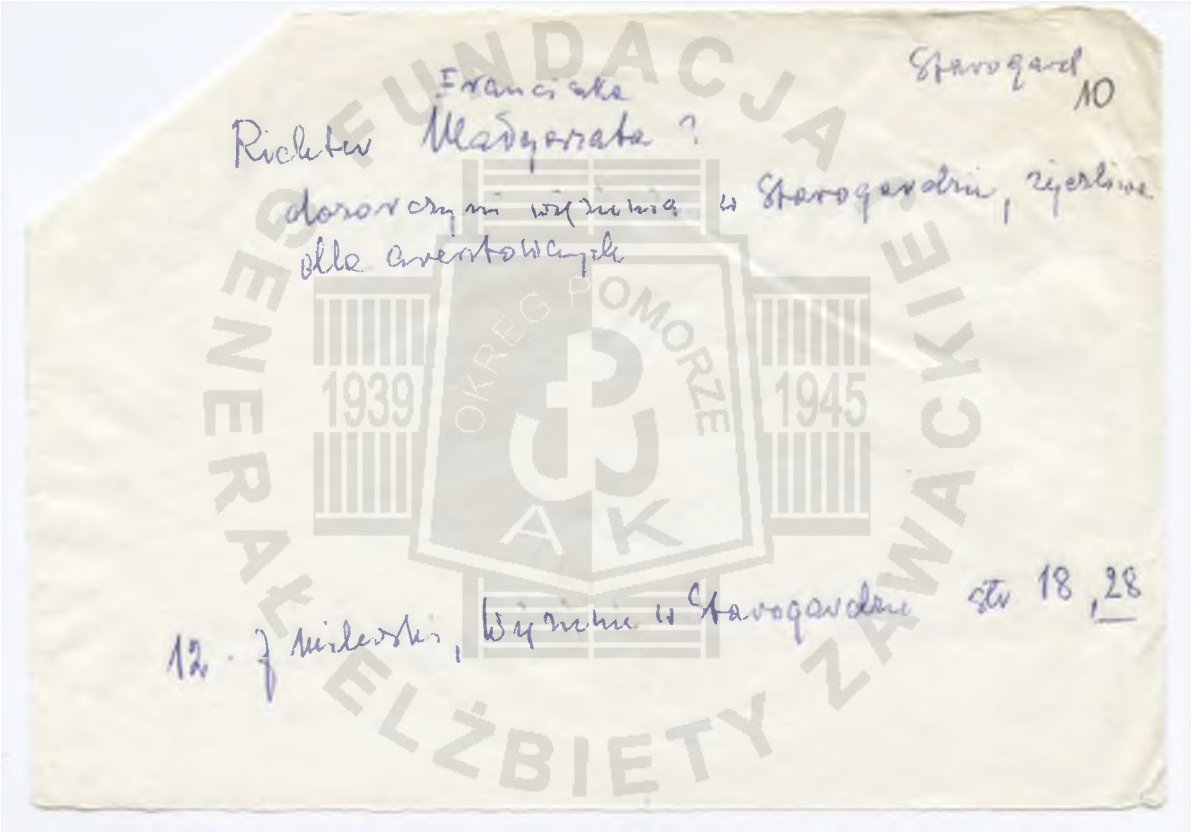 Starogard
10
Franciszka
Richter Małgorzata ?
dozorczyni więzienia w Starogardzie, życzliwa
dla aresztowanych
12. J Milewski, Więzienie w Starogardzie str 18, 28
FUNDACJA
GENERAŁ ELŻBIETY ZAWACKIEJ
OKRĘG POMORZE
1939
1945
AK